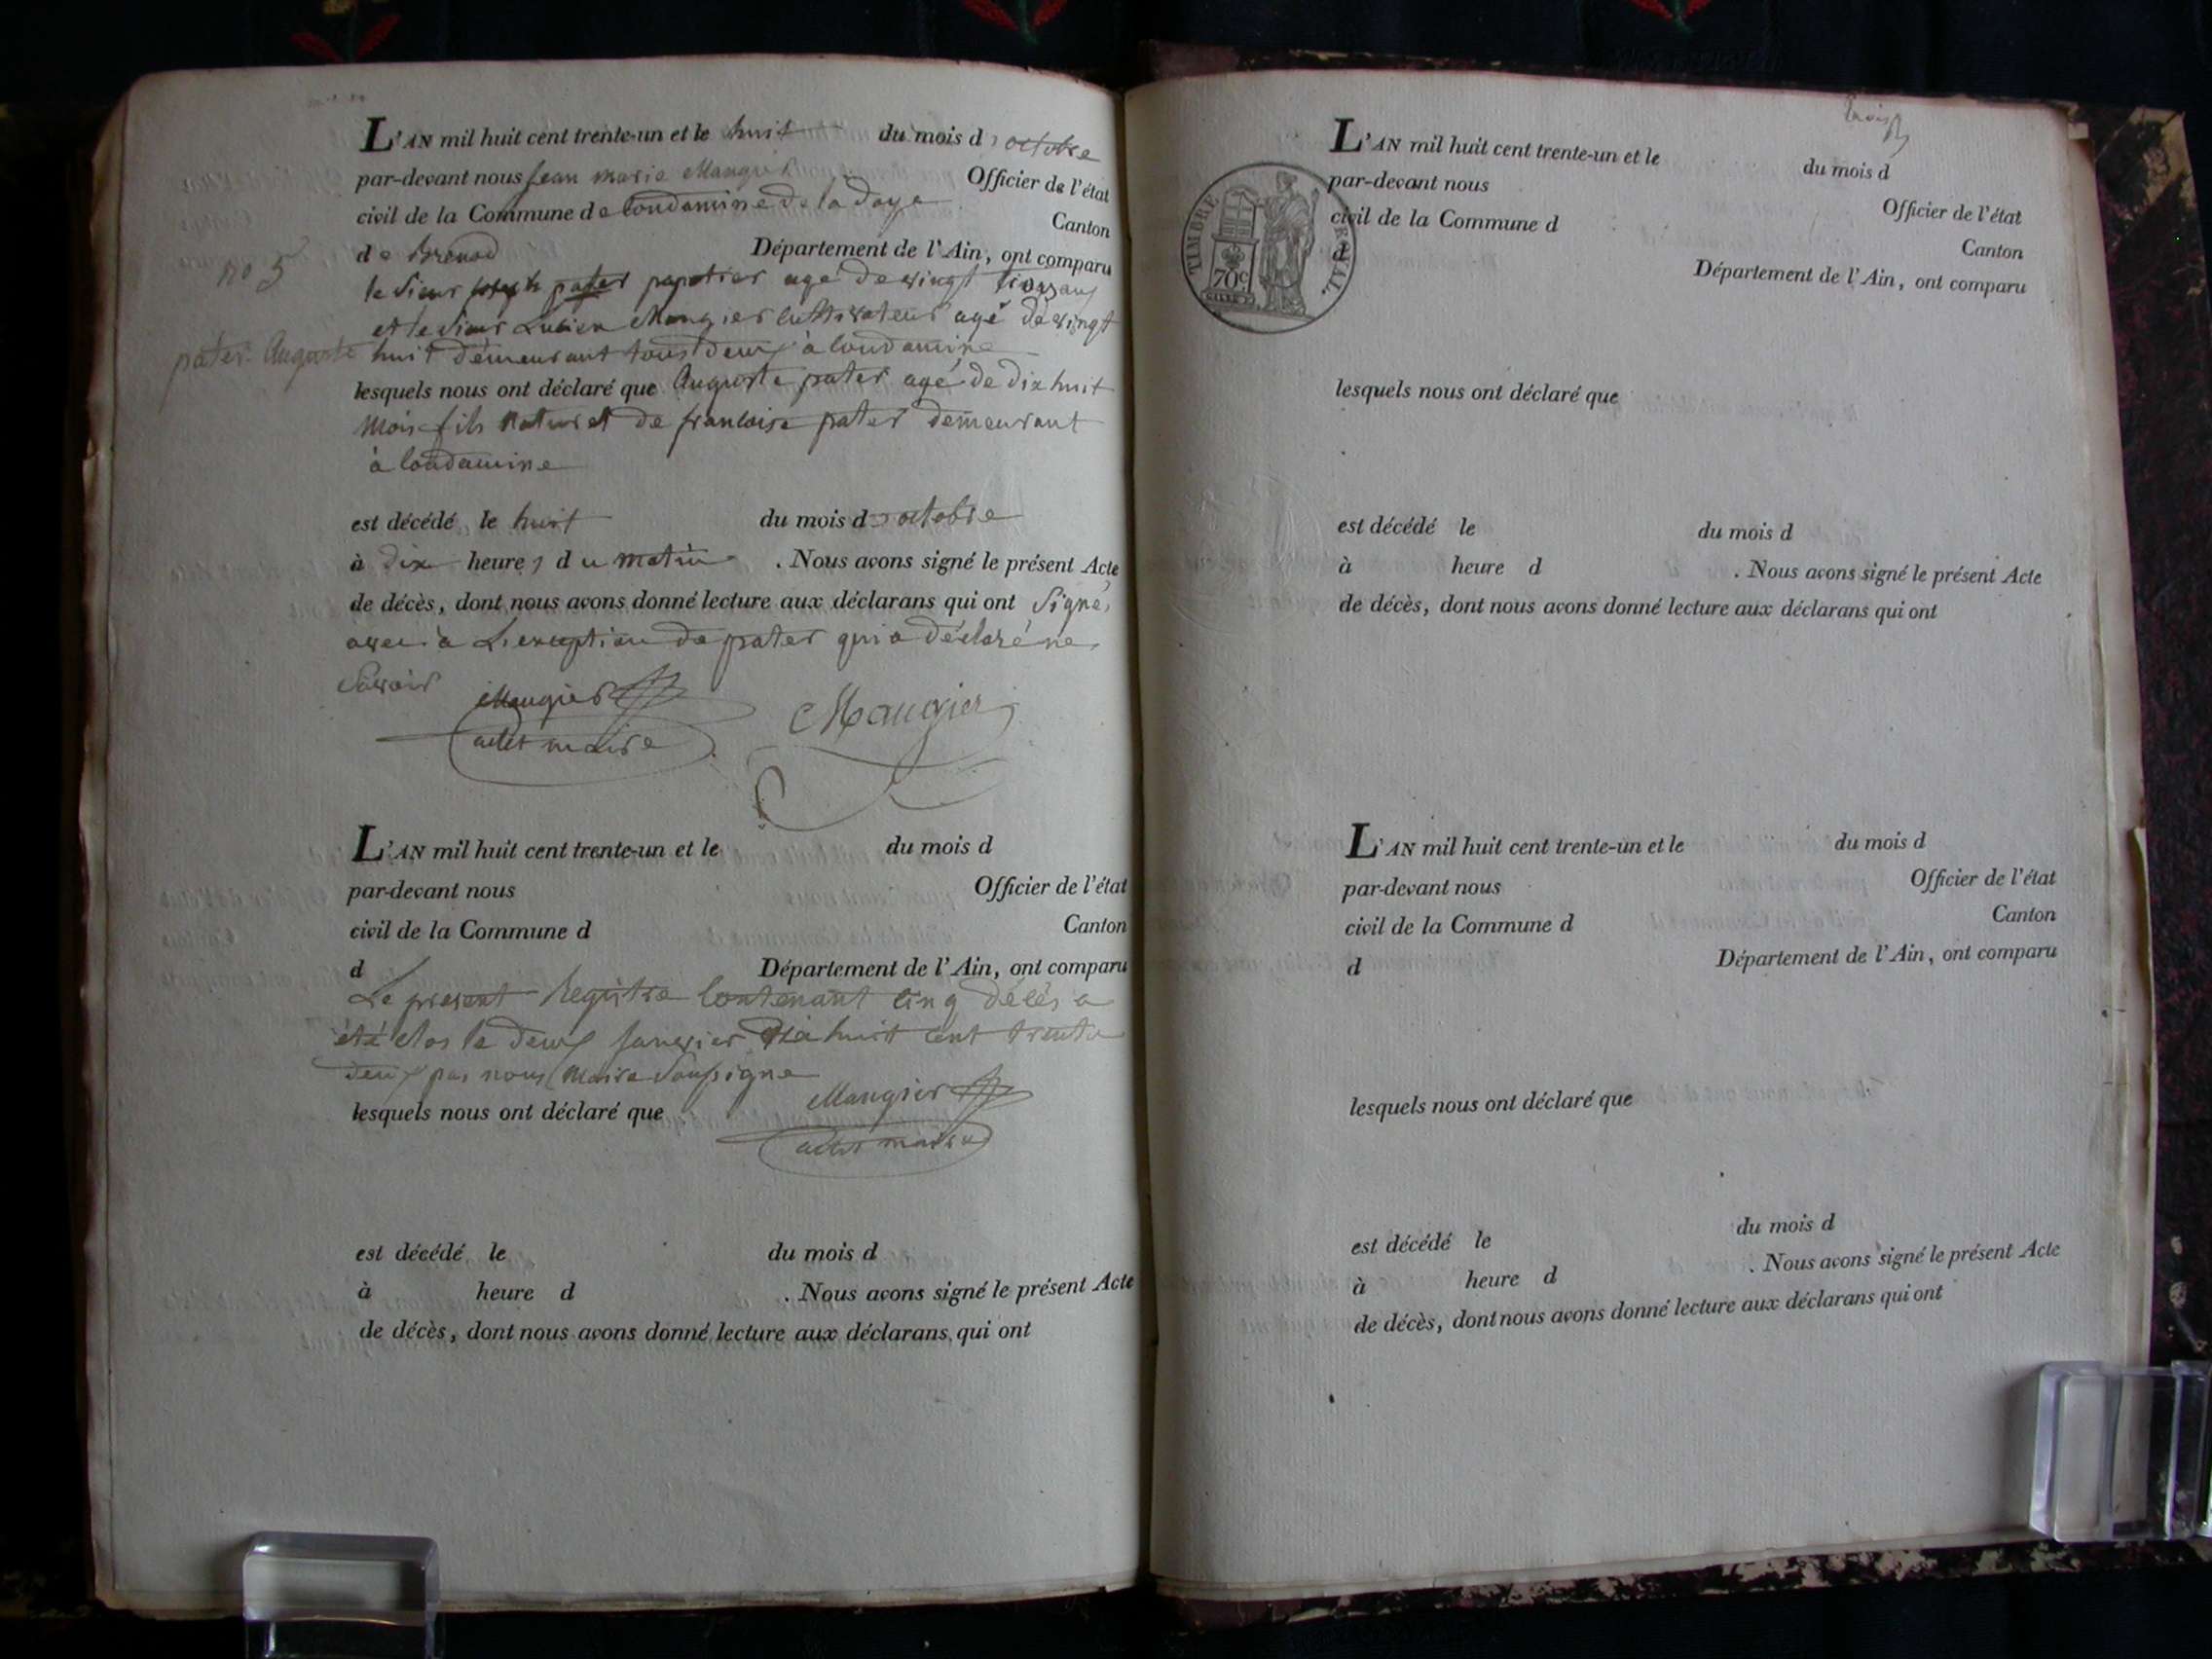 L'AN mil huit cent trente-un et le huit du mois d'octobre
par-devant nous Jean marie Maugier Officier de l'état
civil de la Commune de Condamine de la Doye Canton
de Brenod Département de l'Ain, ont comparu
no 5
le Sieur joseph pater agé de vingt trois ans
et le Sieur Lucien Maugier Cultivateur agé de vingt
pater Auguste
huit demeurant tous deux à Condamine
lesquels nous ont déclaré que Auguste pater agé de dix huit
Mois fils naturel de francoise pater demeurant
à Condamine
est décédé le huit du mois d'octobre
à dix heures du matin . Nous avons signé le présent Acte
de décès, dont nous avons donné lecture aux déclarans qui ont Signé,
à L'exception de pater qui a déclaré ne
Savoir
Maugier
Maugier
maire
L'AN mil huit cent trente-un et le du mois d
par-devant nous Officier de l'état
civil de la Commune d Canton
d Département de l'Ain, ont comparu
Le present Registre Contenant cinq décés a
été Clos le deux Janvier dix huit cent trente
deux par nous Maire Soussigné
Maugier
lesquels nous ont déclaré que
maire
est décédé le du mois d
à heure d . Nous avons signé le présent Acte
de décès, dont nous avons donné lecture aux déclarans qui ont
L'AN mil huit cent trente-un et le du mois d
par-devant nous Officier de l'état
civil de la Commune d Canton
d Département de l'Ain, ont comparu
TIMBRE ROYAL.
70c
lesquels nous ont déclaré que
est décédé le du mois d
à heure d . Nous avons signé le présent Acte
de décès, dont nous avons donné lecture aux déclarans qui ont
L'AN mil huit cent trente-un et le du mois d
par-devant nous Officier de l'état
civil de la Commune d Canton
d Département de l'Ain, ont comparu
lesquels nous ont déclaré que
est décédé le du mois d
à heure d . Nous avons signé le présent Acte
de décès, dont nous avons donné lecture aux déclarans qui ont